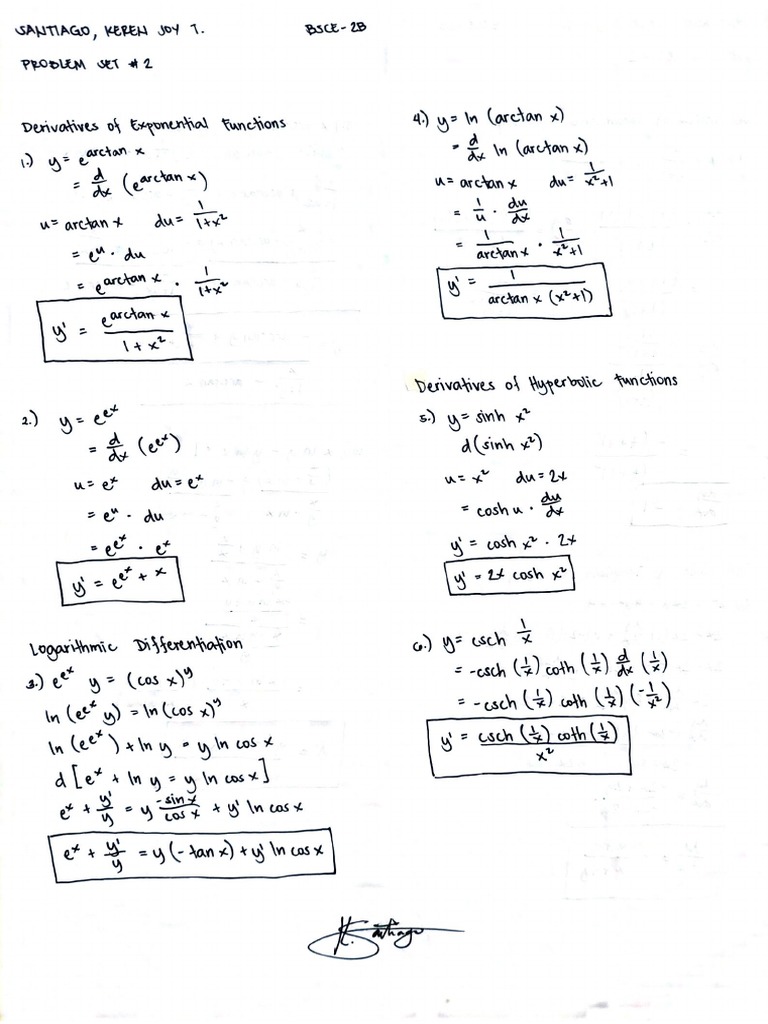 SANTIAGO, KEREN JOY T. BSCE-2B
PROBLEM SET #2
Derivatives of Exponential Functions
1.) y = e^{arctan x}
= d/dx (e^{arctan x})
u = arctan x du = 1/(1+x²)
= e^u · du
= e^{arctan x} · 1/(1+x²)
y' = e^{arctan x}/(1+x²)
2.) y = e^{e^x}
= d/dx (e^{e^x})
u = e^x du = e^x
= e^u · du
= e^{e^x} · e^x
y' = e^{e^x + x}
Logarithmic Differentiation
3.) e^{e^x} y = (cos x)^y
ln (e^{e^x} y) = ln (cos x)^y
ln (e^{e^x}) + ln y = y ln cos x
d [e^x + ln y = y ln cos x]
e^x + y'/y = y -sin x/cos x + y' ln cos x
e^x + y'/y = y (-tan x) + y' ln cos x
4.) y = ln (arctan x)
= d/dx ln (arctan x)
u = arctan x du = 1/(x²+1)
= 1/u · du/dx
= 1/arctan x · 1/(x²+1)
y' = 1/(arctan x (x²+1))
Derivatives of Hyperbolic Functions
5.) y = sinh x²
d (sinh x²)
u = x² du = 2x
= cosh u · du/dx
y' = cosh x² · 2x
y' = 2x cosh x²
6.) y = csch 1/x
= -csch (1/x) coth (1/x) d/dx (1/x)
= -csch (1/x) coth (1/x) (-1/x²)
y' = csch (1/x) coth (1/x)/x²
K. Santiago